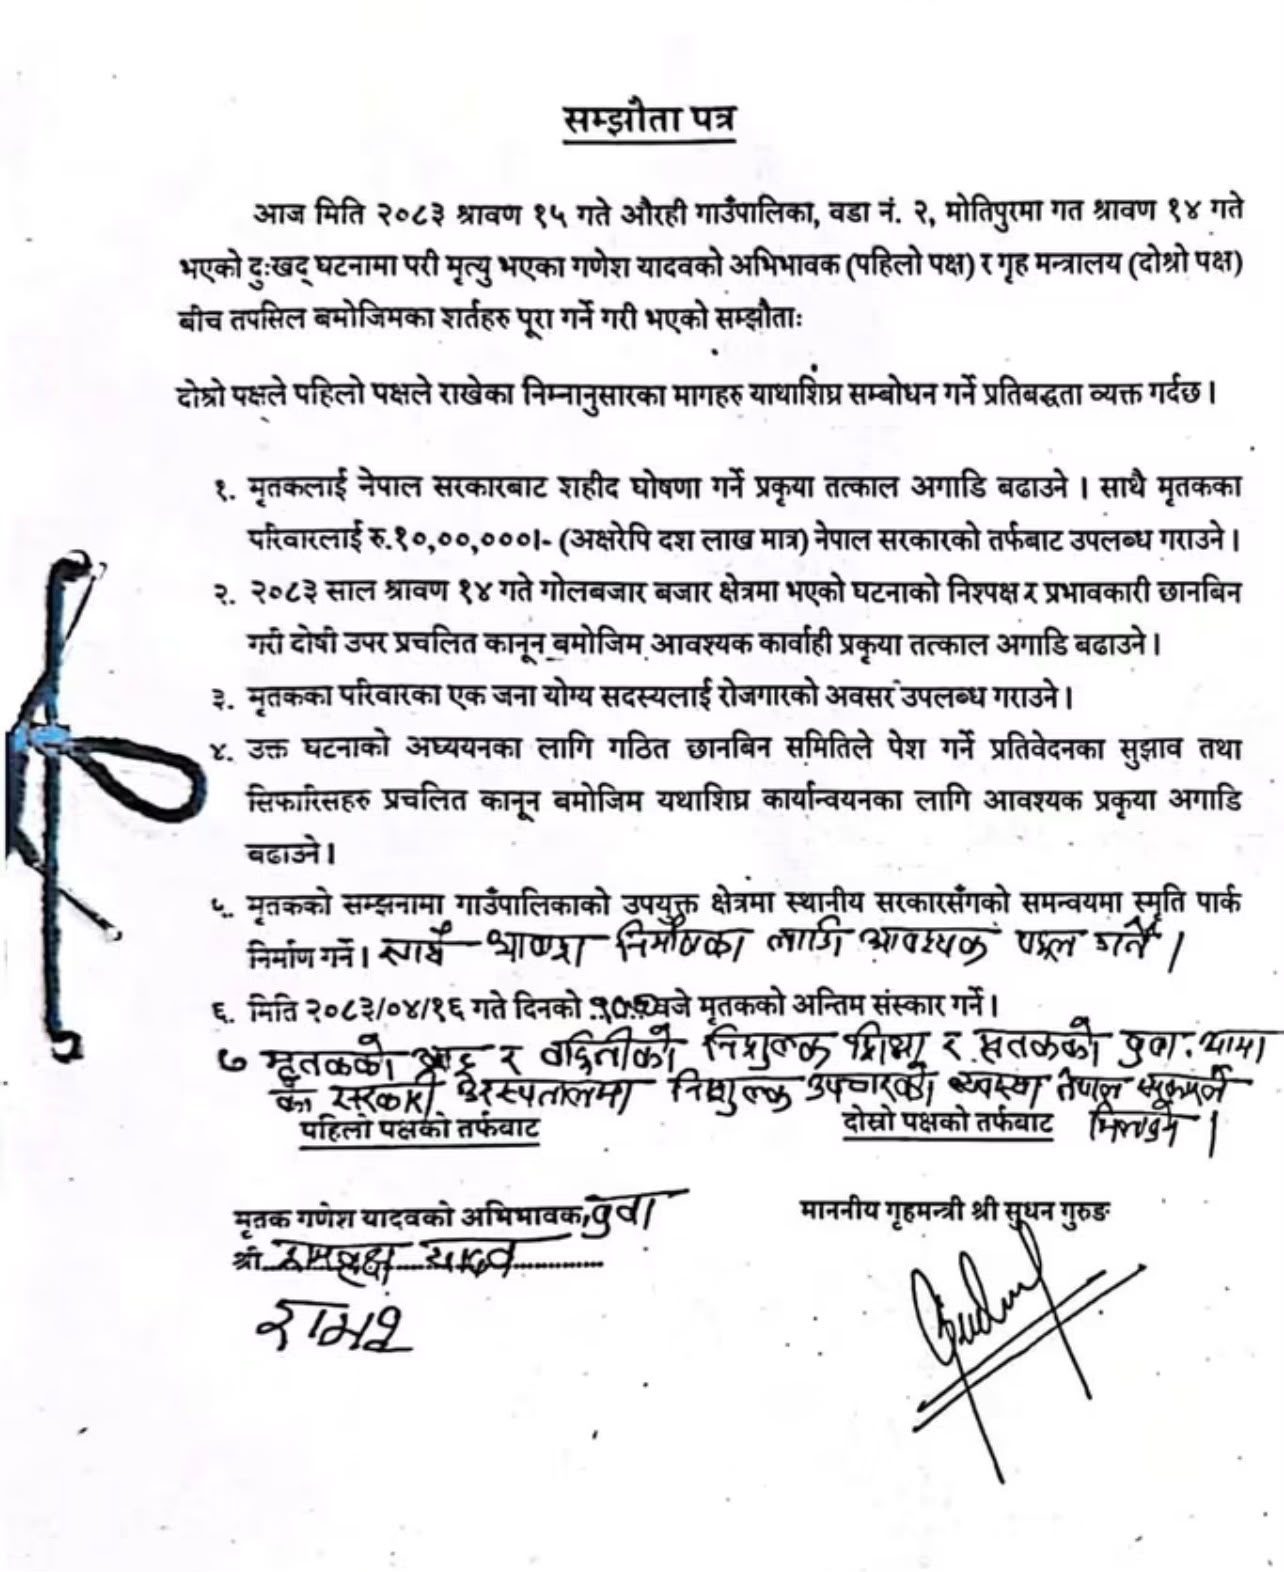 सम्झौता पत्र
आज मिति २०८३ श्रावण १५ गते औरही गाउँपालिका, वडा नं. २, मोतिपुरमा गत श्रावण १४ गते
भएको दुःखद् घटनामा परी मृत्यु भएका गणेश यादवको अभिभावक (पहिलो पक्ष) र गृह मन्त्रालय (दोश्रो पक्ष)
बीच तपसिल बमोजिमका शर्तहरु पूरा गर्ने गरी भएको सम्झौताः
दोश्रो पक्षले पहिलो पक्षले राखेका निम्नानुसारका मागहरु याथाशिघ्र सम्बोधन गर्ने प्रतिबद्धता व्यक्त गर्दछ ।
१. मृतकलाई नेपाल सरकारबाट शहीद घोषणा गर्ने प्रकृया तत्काल अगाडि बढाउने । साथै मृतकका
परिवारलाई रु.१०,००,०००।- (अक्षरेपि दश लाख मात्र) नेपाल सरकारको तर्फबाट उपलब्ध गराउने ।
२. २०८३ साल श्रावण १४ गते गोलबजार बजार क्षेत्रमा भएको घटनाको निश्पक्ष र प्रभावकारी छानबिन
गरी दोषी उपर प्रचलित कानून बमोजिम आवश्यक कार्वाही प्रकृया तत्काल अगाडि बढाउने ।
३. मृतकका परिवारका एक जना योग्य सदस्यलाई रोजगारको अवसर उपलब्ध गराउने ।
४. उक्त घटनाको अध्ययनका लागि गठित छानबिन समितिले पेश गर्ने प्रतिवेदनका सुझाव तथा
सिफारिसहरु प्रचलित कानून बमोजिम यथाशिघ्र कार्यान्वयनका लागि आवश्यक प्रकृया अगाडि
बढाउने ।
५. मृतकको सम्झनामा गाउँपालिकाको उपयुक्त क्षेत्रमा स्थानीय सरकारसँगको समन्वयमा स्मृति पार्क
निर्माण गर्ने । साथै निर्माणका लागि आवश्यक पहल गर्ने ।
६. मिति २०८३/०४/१६ गते दिनको बजे मृतकको अन्तिम संस्कार गर्ने ।
७ मृतकको भाइ र बहिनीको निशुल्क शिक्षा र मृतकको बुवा, आमा
का सरकारी अस्पतालमा निशुल्क उपचारको व्यवस्था नेपाल सरकारले
मिलाउने ।
पहिलो पक्षको तर्फबाट
दोस्रो पक्षको तर्फबाट
मृतक गणेश यादवको अभिभावक, बुवा
श्री. रामवृक्ष यादव
माननीय गृहमन्त्री श्री सुधन गुरुङ